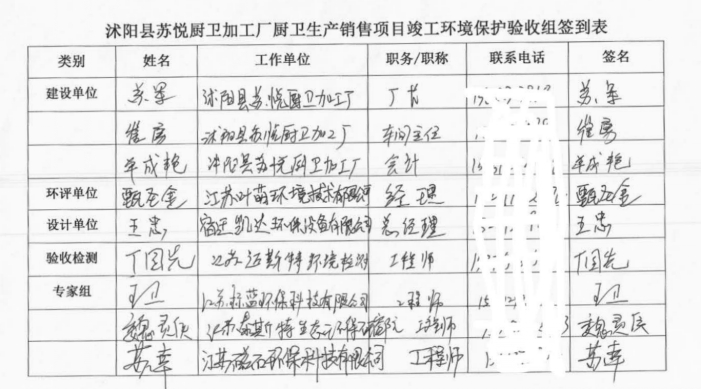 沭阳县苏悦厨卫加工厂厨卫生产销售项目竣工环境保护验收组签到表
类别 姓名 工作单位 职务/职称 联系电话 签名
建设单位 苏军 沭阳县苏悦厨卫加工厂 厂长 苏军
沭阳县苏悦厨卫加工厂 车间主任
单成艳 沭阳县苏悦厨卫加工厂 会计 单成艳
环评单位 甄玉金 江苏叶萌环境技术有限公司 经理 甄玉金
设计单位 王忠 宿迁凯达环保设备有限公司 总经理 王忠
验收检测 丁国先 江苏迈斯特环境检测 工程师 丁国先
专家组 王卫 江苏 蓝环保科技有限公司 工程师 王卫
魏灵 江苏 院 工程师 魏灵
苏连 江苏磁石环保科技有限公司 工程师 苏连